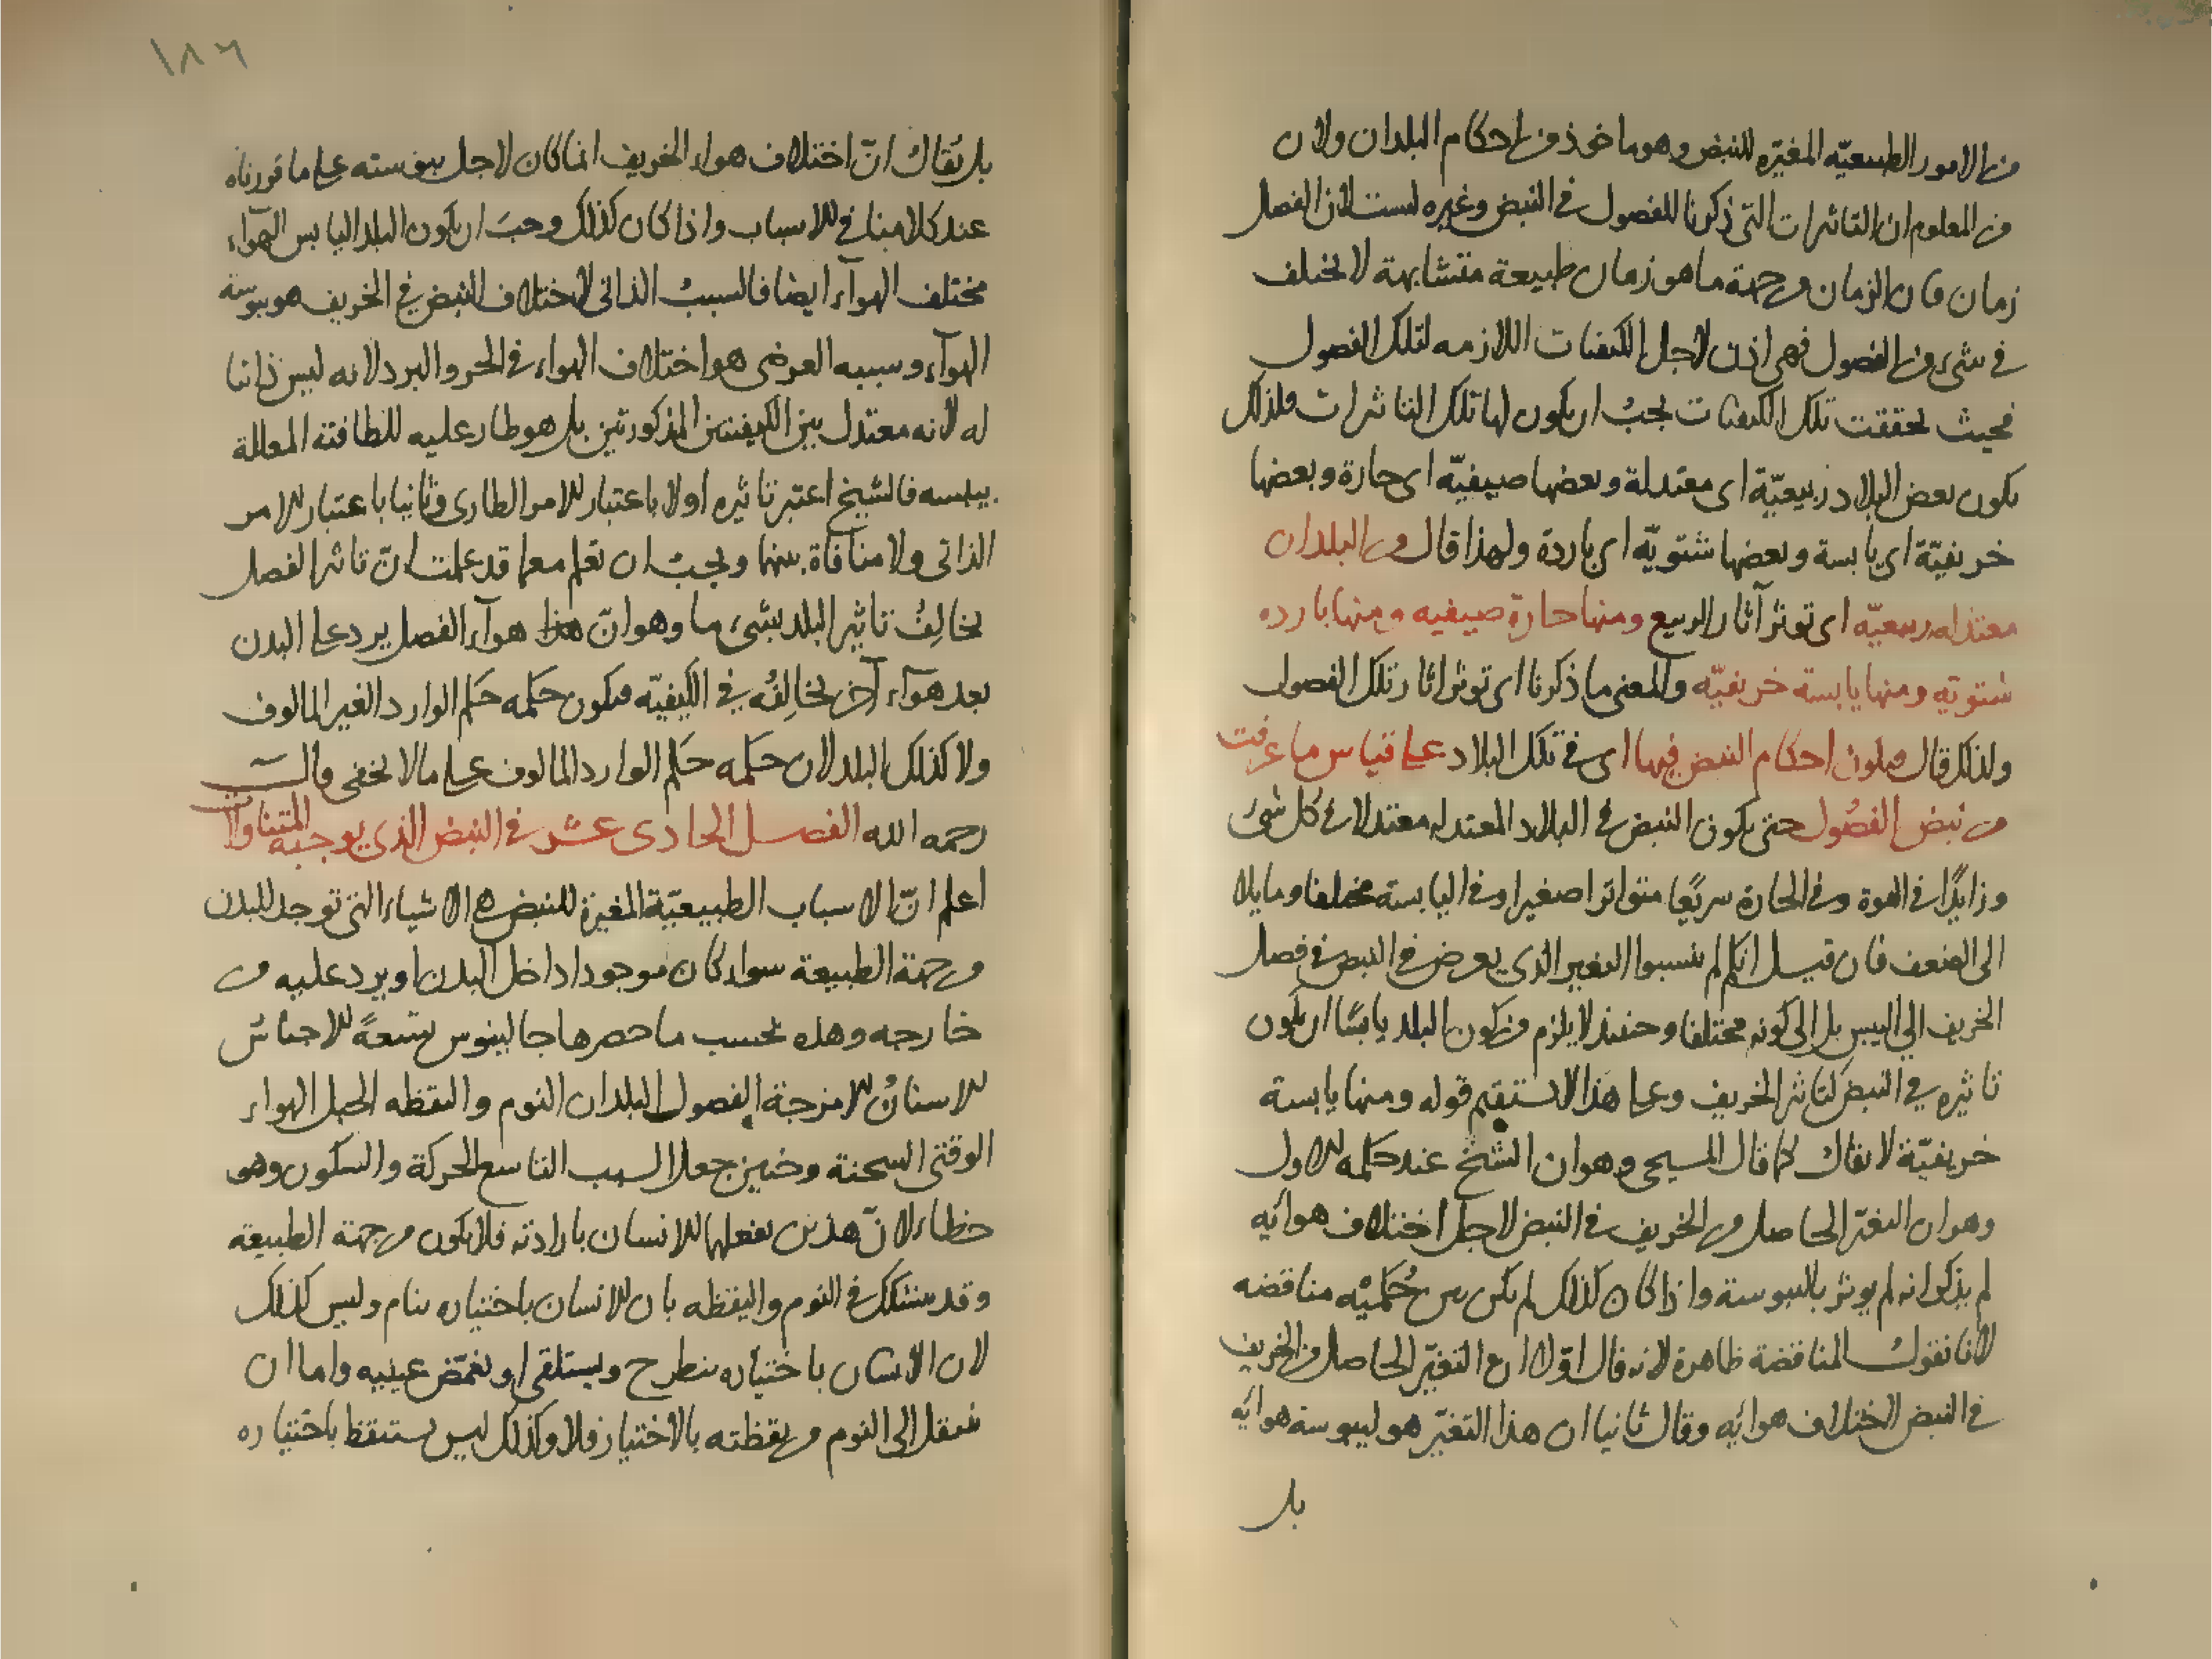 من الامور الطبيعيّه المغيّره للنبض وهو ماخوذ من احكام البلدان ولان
من المعلوم ان التاثيرات التى ذكرنا للفصول فى النبض وغيره ليست لان الفصل
زمان فان الزمان من جهة ما هو زمان طبيعة متشابهة لا تختلف
فى شىء من الفصول فهى اذن لاجل الكيفيات اللازمه لتلك الفصول
فحيث تحققت تلك الكيفيات يجبُ ان يكون لها تلك التاثيرات فلذلك
يكون بعض البلاد ربيعيّة اى معتدلة وبعضها صيفيّة اى حارة وبعضها
خريفيّة اى يابسة وبعضها شتويّه اى باردة ولهذا قال من البلدان
معتدله ربيعيّه اى توثر آثار الربيع ومنها حارة صيفيه ومنها بارده
شتويه ومنها يابسة خريفيّه والمعنى ما ذكرنا اى توثر اثار تلك الفصول
ولذلك قال فيكون احكام النبض فيها اى فى تلك البلاد على قياس ما عرفت
من نبض الفصُول حتى يكون النبض فى البلاد المعتدله معتدلا فى كل شئ
وزايدًا فى القوة وفى الحارة سريعًا متواترا صغيرا وفى اليابسة مختلفا ومايلا
الى الضعف فان قيل انكم لم تنسبوا التغير الذى يعرض فى النبض فى فصل
الخريف الى اليبس بل الى كونه مختلفا وحينئذ لا يلزم من كون البلد يابسًا ان يكون
تاثيره فى النبض كتاثير الخريف وعلى هذا لا يستقيم قوله ومنها يابسة
خريفيّة لا يقال كما قال المسيحى وهو ان الشيخ عند حكمه الاول
وهو ان التغيّر الحاصل من الخريف فى النبض لاجل اختلاف هوائه
لم يذكر انه لم يوثر باليبوسة واذا كان كذلك لم يكن بين حُكميْه مناقضه
لانا نقول المناقضة ظاهرة لانه قال اوّلا ان التغيّر الحاصل من الخريف
فى النبض لاختلاف هوائه وقال ثانيا ان هذا التغيّر هو ليبوسة هوائه
بل
١٨٦
بل يُقال انّ اختلاف هواء الخريف انما كان لاجل يبوسته على ما قررناه
عند كلامنا فى الاسباب واذا كان كذلك وجبَ ان يكون البلد اليابس الهوآء
مختلف الهوآء ايضا فالسببُ الذاتى لاختلاف النبض فى الخريف هو يبوسة
الهوآء وسببه العرضى هو اختلاف الهواء فى الحر والبرد لانه ليس ذاتيا
له لانه معتدل بين الكيفيتين المذكورتين بل هو طار عليه للطافته المعللة
بيبسه فالشيخ اعتبر تاثيره اولا باعتبار الامر الطارى وثانيا باعتبار الامر
الذاتى ولا منافاة بينهما ويجبُ ان تعلم معما قد علمت انّ تاثير الفصل
يخالِفُ تاثير البلد بشىء ما وهو انّ هوآء الفصل يرد على البدن
بعد هوآء آخر يخالِفُه فى الكيفيّه فيكون حكمه حكم الوارد الغير المالوف
ولا كذلك البلد لان حكمه حكم الوارد المالوف على ما لا يخفى قال الشيخ
رحمه الله الفصل الحادى عشر فى النبض الذى يوجبه المتناولات
اعلم انّ الاسباب الطبيعيّة المغيرة للنبض هى الاشياء التى توجد للبدن
من جهة الطبيعة سواء كان موجودا داخل البدن او يرد عليه من
خارجه وهذه بحسب ما حصرها جالينوس تسعةً الاجناس
الاسنانُ الامزجة الفصول البلدان النوم واليقظه الحبل الهواء
الوقتى السحنة وحنين جعل السبب التاسع الحركة والسكون وهو
خطاء لانّ هذين يفعلهما الانسان بارادته فلا يكون من جهة الطبيعة
وقد يتشكك فى النوم واليقظه بان الانسان باختياره ينام وليس كذلك
لان الانسان باختياره ينطرح ويستلقى او يغمّض عينيه واما ان
ينتقل الى النوم من يقظته بالاختيار فلا وكذلك ليس يستيقظ باختياره